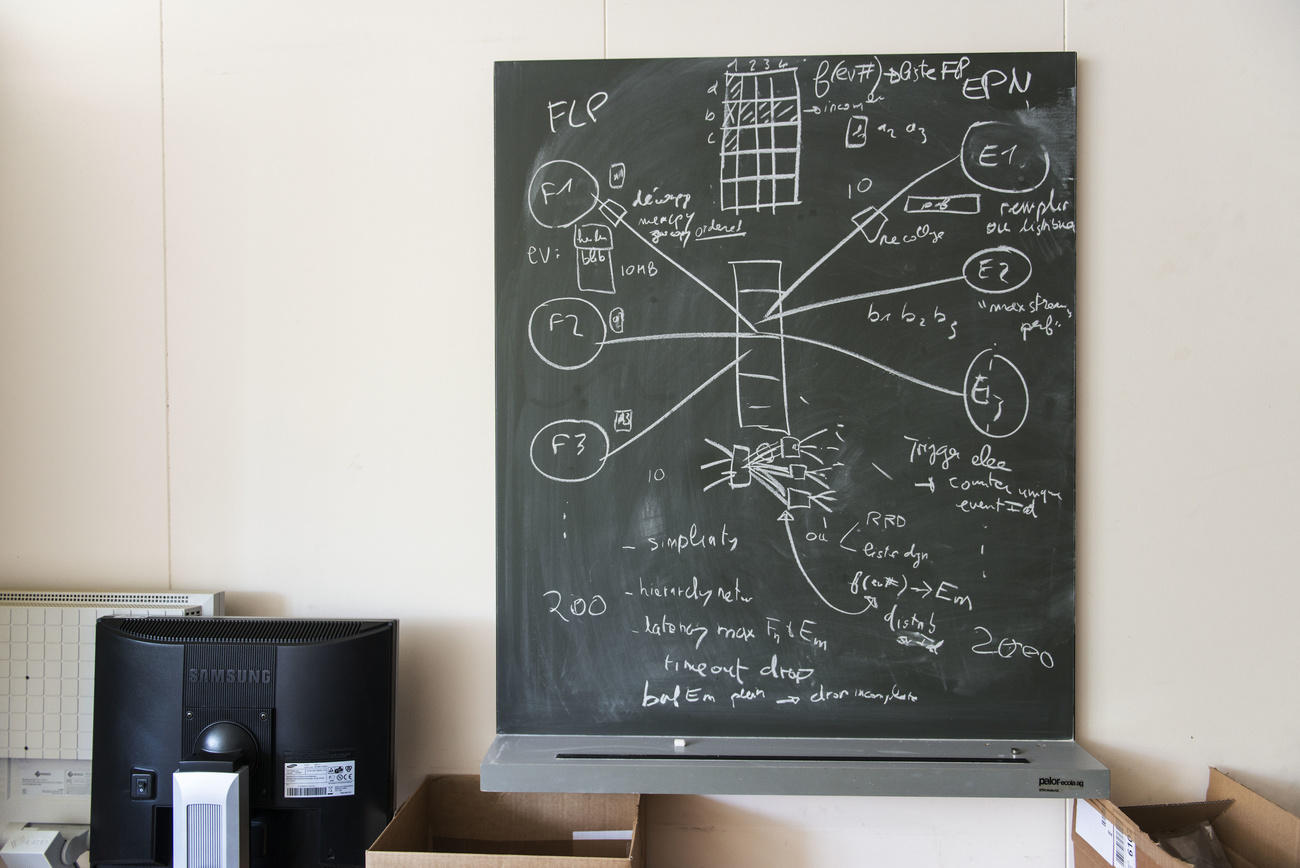 1 2 3 4
f(ev#) → liste FLP
EPN
FLP
a
b
→ incom
c
a2 a3
E1
F1
10
decoupp
memcpy
zerocopy ordered
remplir
recolle
ev:
header
10MB
E2
b1 b2 b3
"max stream
perf"
F2
a2
E3
F3
a3
10
Trigger elec
→ counter unique
event Id
- simplicity
ou
RRD
liste dyn
- hierarchy netw
f(ev#) → Em
200
distrib
- latency max Fn ↔ Em
2000
timeout drop
buf Em plein → drop incomplete
SAMSUNG
SAMSUNG
palor-ecola ag